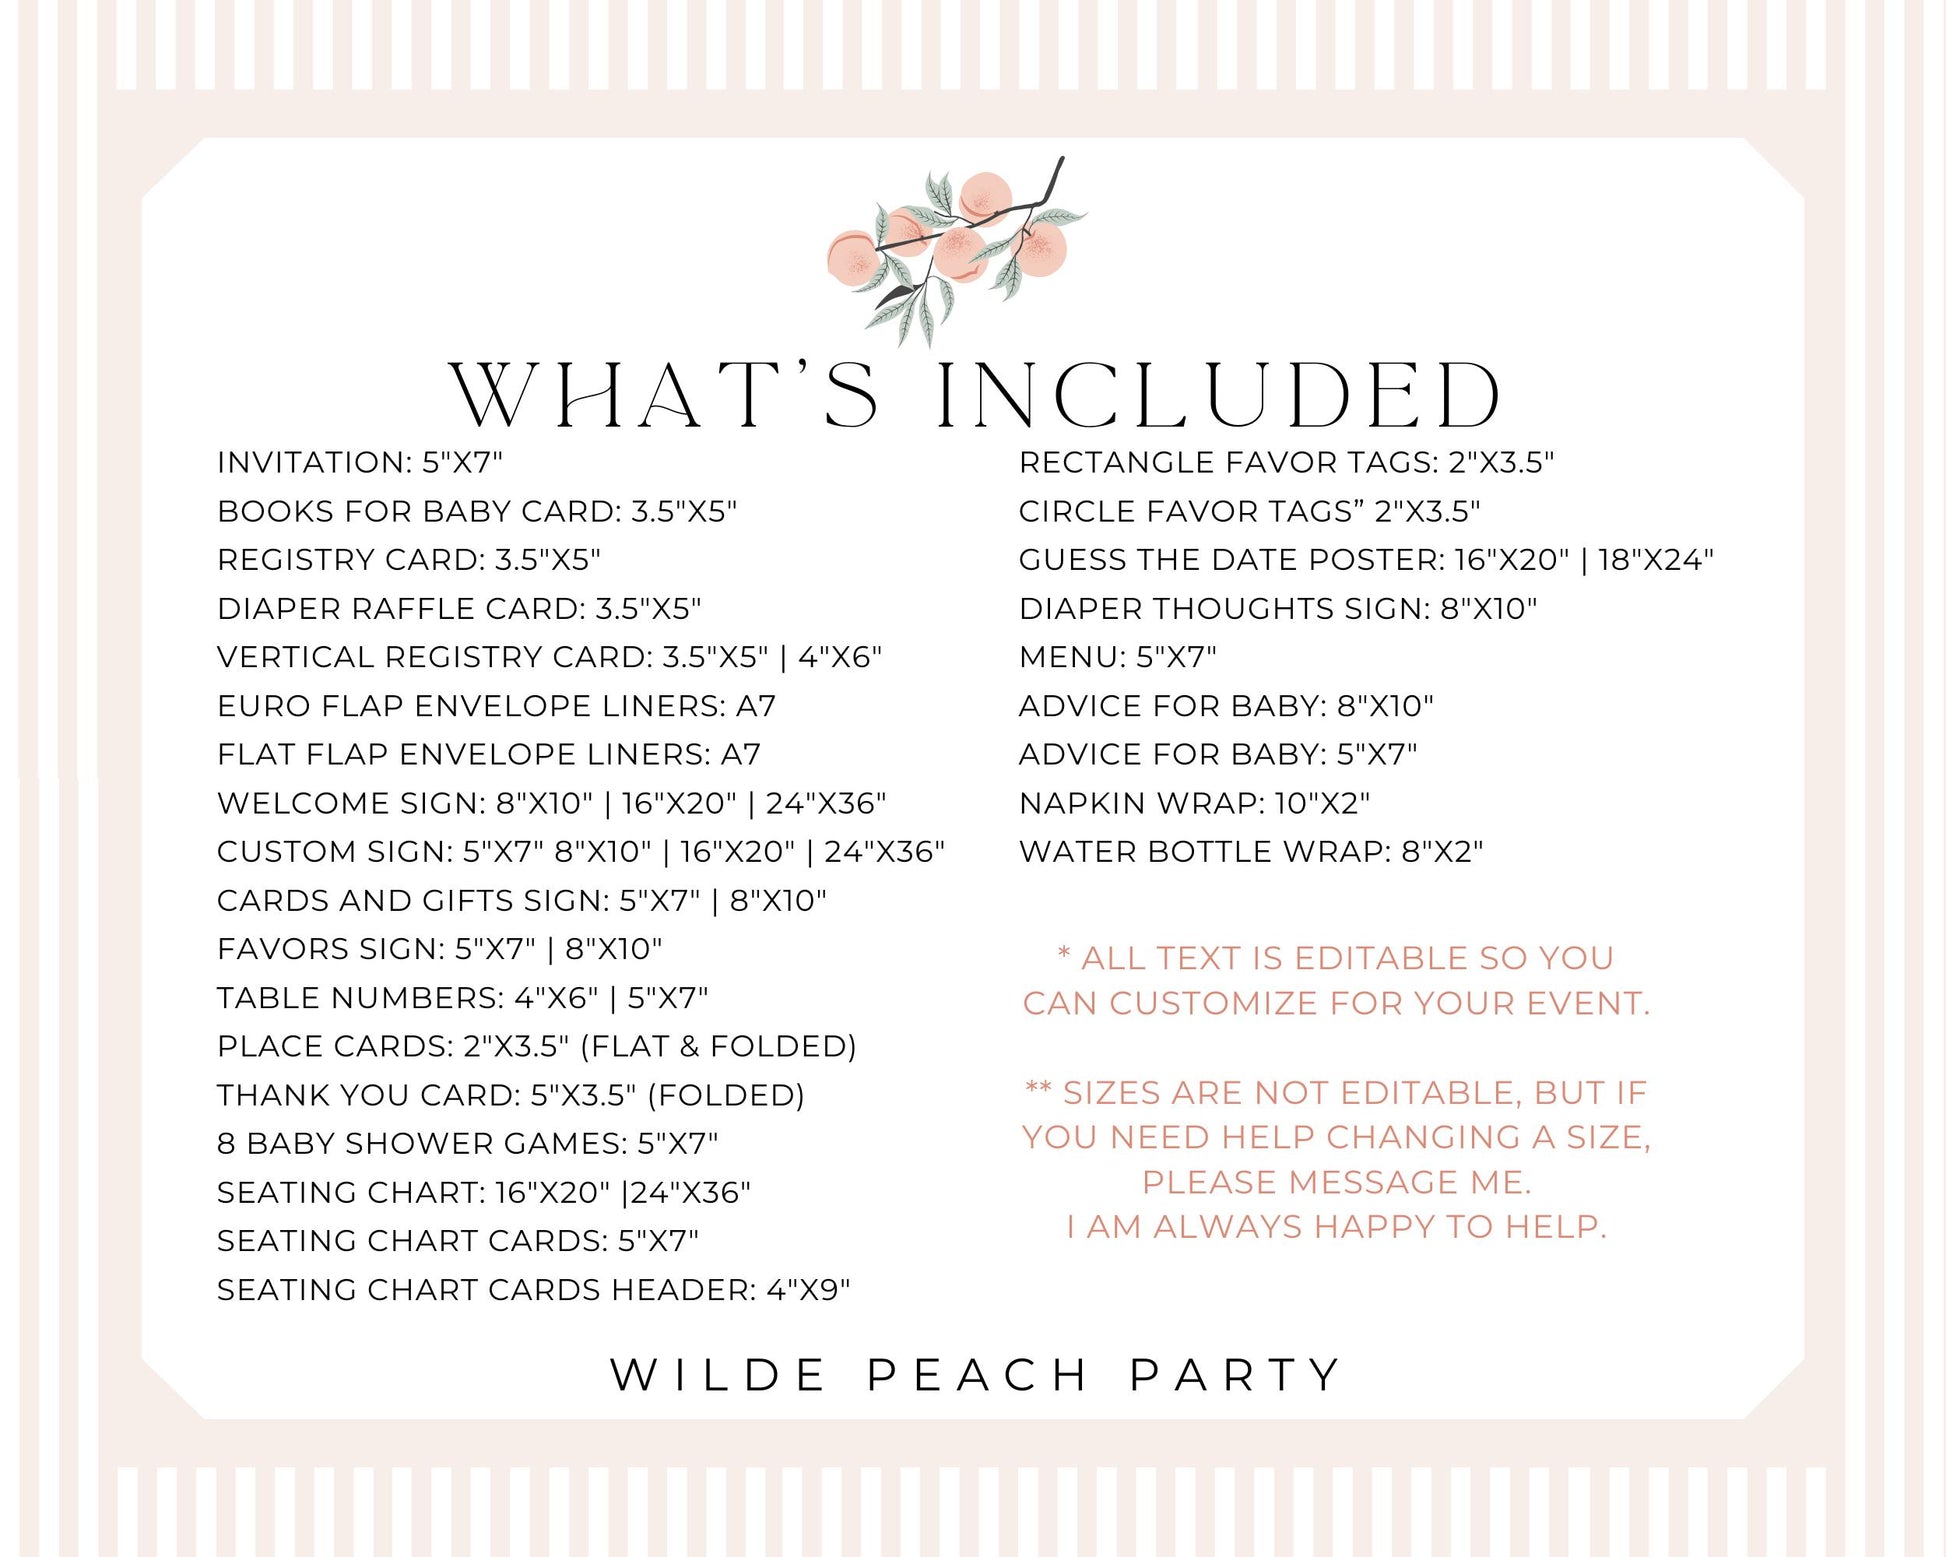 WHAT'S INCLUDED
INVITATION: 5"X7"
BOOKS FOR BABY CARD: 3.5"X5"
REGISTRY CARD: 3.5"X5"
DIAPER RAFFLE CARD: 3.5"X5"
VERTICAL REGISTRY CARD: 3.5"X5" | 4"X6"
EURO FLAP ENVELOPE LINERS: A7
FLAT FLAP ENVELOPE LINERS: A7
WELCOME SIGN: 8"X10" | 16"X20" | 24"X36"
CUSTOM SIGN: 5"X7" 8"X10" | 16"X20" | 24"X36"
CARDS AND GIFTS SIGN: 5"X7" | 8"X10"
FAVORS SIGN: 5"X7" | 8"X10"
TABLE NUMBERS: 4"X6" | 5"X7"
PLACE CARDS: 2"X3.5" (FLAT & FOLDED)
THANK YOU CARD: 5"X3.5" (FOLDED)
8 BABY SHOWER GAMES: 5"X7"
SEATING CHART: 16"X20" |24"X36"
SEATING CHART CARDS: 5"X7"
SEATING CHART CARDS HEADER: 4"X9"
RECTANGLE FAVOR TAGS: 2"X3.5"
CIRCLE FAVOR TAGS” 2"X3.5"
GUESS THE DATE POSTER: 16"X20" | 18"X24"
DIAPER THOUGHTS SIGN: 8"X10"
MENU: 5"X7"
ADVICE FOR BABY: 8"X10"
ADVICE FOR BABY: 5"X7"
NAPKIN WRAP: 10"X2"
WATER BOTTLE WRAP: 8"X2"
* ALL TEXT IS EDITABLE SO YOU
CAN CUSTOMIZE FOR YOUR EVENT.
** SIZES ARE NOT EDITABLE, BUT IF
YOU NEED HELP CHANGING A SIZE,
PLEASE MESSAGE ME.
I AM ALWAYS HAPPY TO HELP.
WILDE PEACH PARTY